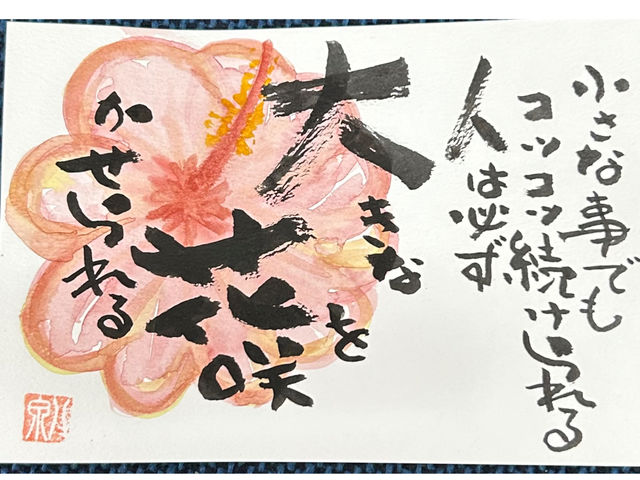 小さな事でも
コツコツ続けられる
人は必ず
大きな
花を咲
かせられる
泉